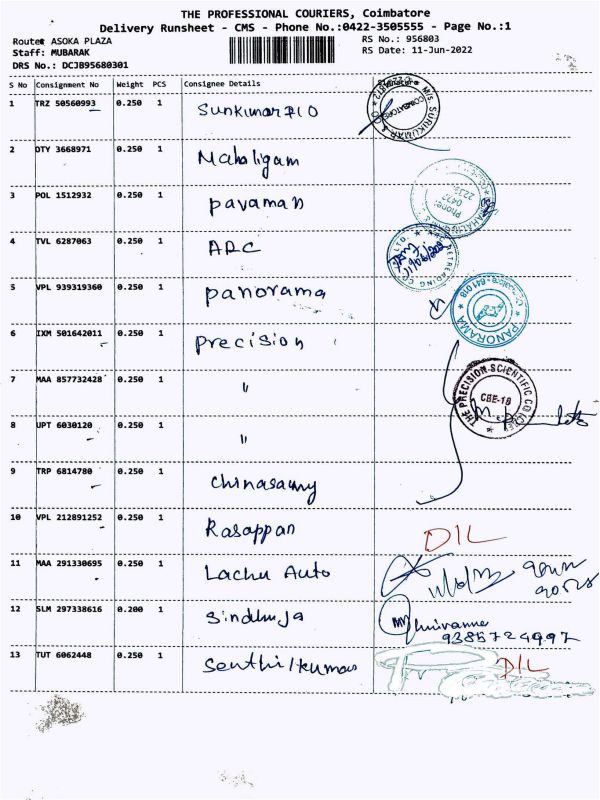 THE PROFESSIONAL COURIERS, Coimbatore
Delivery Runsheet - CMS - Phone No.:0422-3505555 - Page No.:1
Route: ASOKA PLAZA
RS No.: 956803
Staff: MUBARAK
RS Date: 11-Jun-2022
DRS No.: DCJB95680301
S No Consignment No Weight PCS Consignee Details
1 TRZ 50560993 0.250 1 Sunkumar & O
2 DTY 3668971 0.250 1 Mahaligam
3 POL 1512932 0.250 1 pavaman
4 TVL 6287063 0.250 1 ARC
5 VPL 939319360 0.250 1 panorama
PANORAMA
6 IXM 501642011 0.250 1 precision
7 MAA 857732428 0.250 1 "
THE PRECISION SCIENTIFIC CO (CBE)
CBE-18
8 UPT 6030120 0.250 1 "
9 TRP 6814780 0.250 1 chinasamy
10 VPL 212891252 0.250 1 Rasappan DIL
11 MAA 291330695 0.250 1 Lachu Auto
12 SLM 297338616 0.200 1 Sindhuja
9385724997
13 TUT 6062448 0.250 1 Senthilkumar DIL